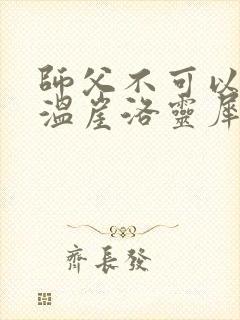 師父不可以
溫崖洛靈犀
齊長發